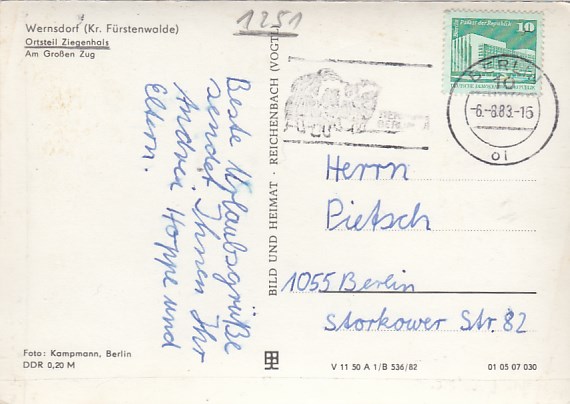 Wernsdorf (Kr. Fürstenwalde)
Ortsteil Ziegenhals
Am Großen Zug
1251
Beste Urlaubsgrüße
sendet Ihnen Ihr
Andrea Hoppe und
Eltern.
Foto: Kampmann, Berlin
DDR 0,20 M
BILD UND HEIMAT · REICHENBACH (VOGTL
Palast der Republik
10
BERLIN
10
-6.-8.83.-16
ol
BERLIN
Herrn
Pietsch
1055 Berlin
Storkower Str. 82
V 11 50 A 1/B 536/82
01 05 07 030